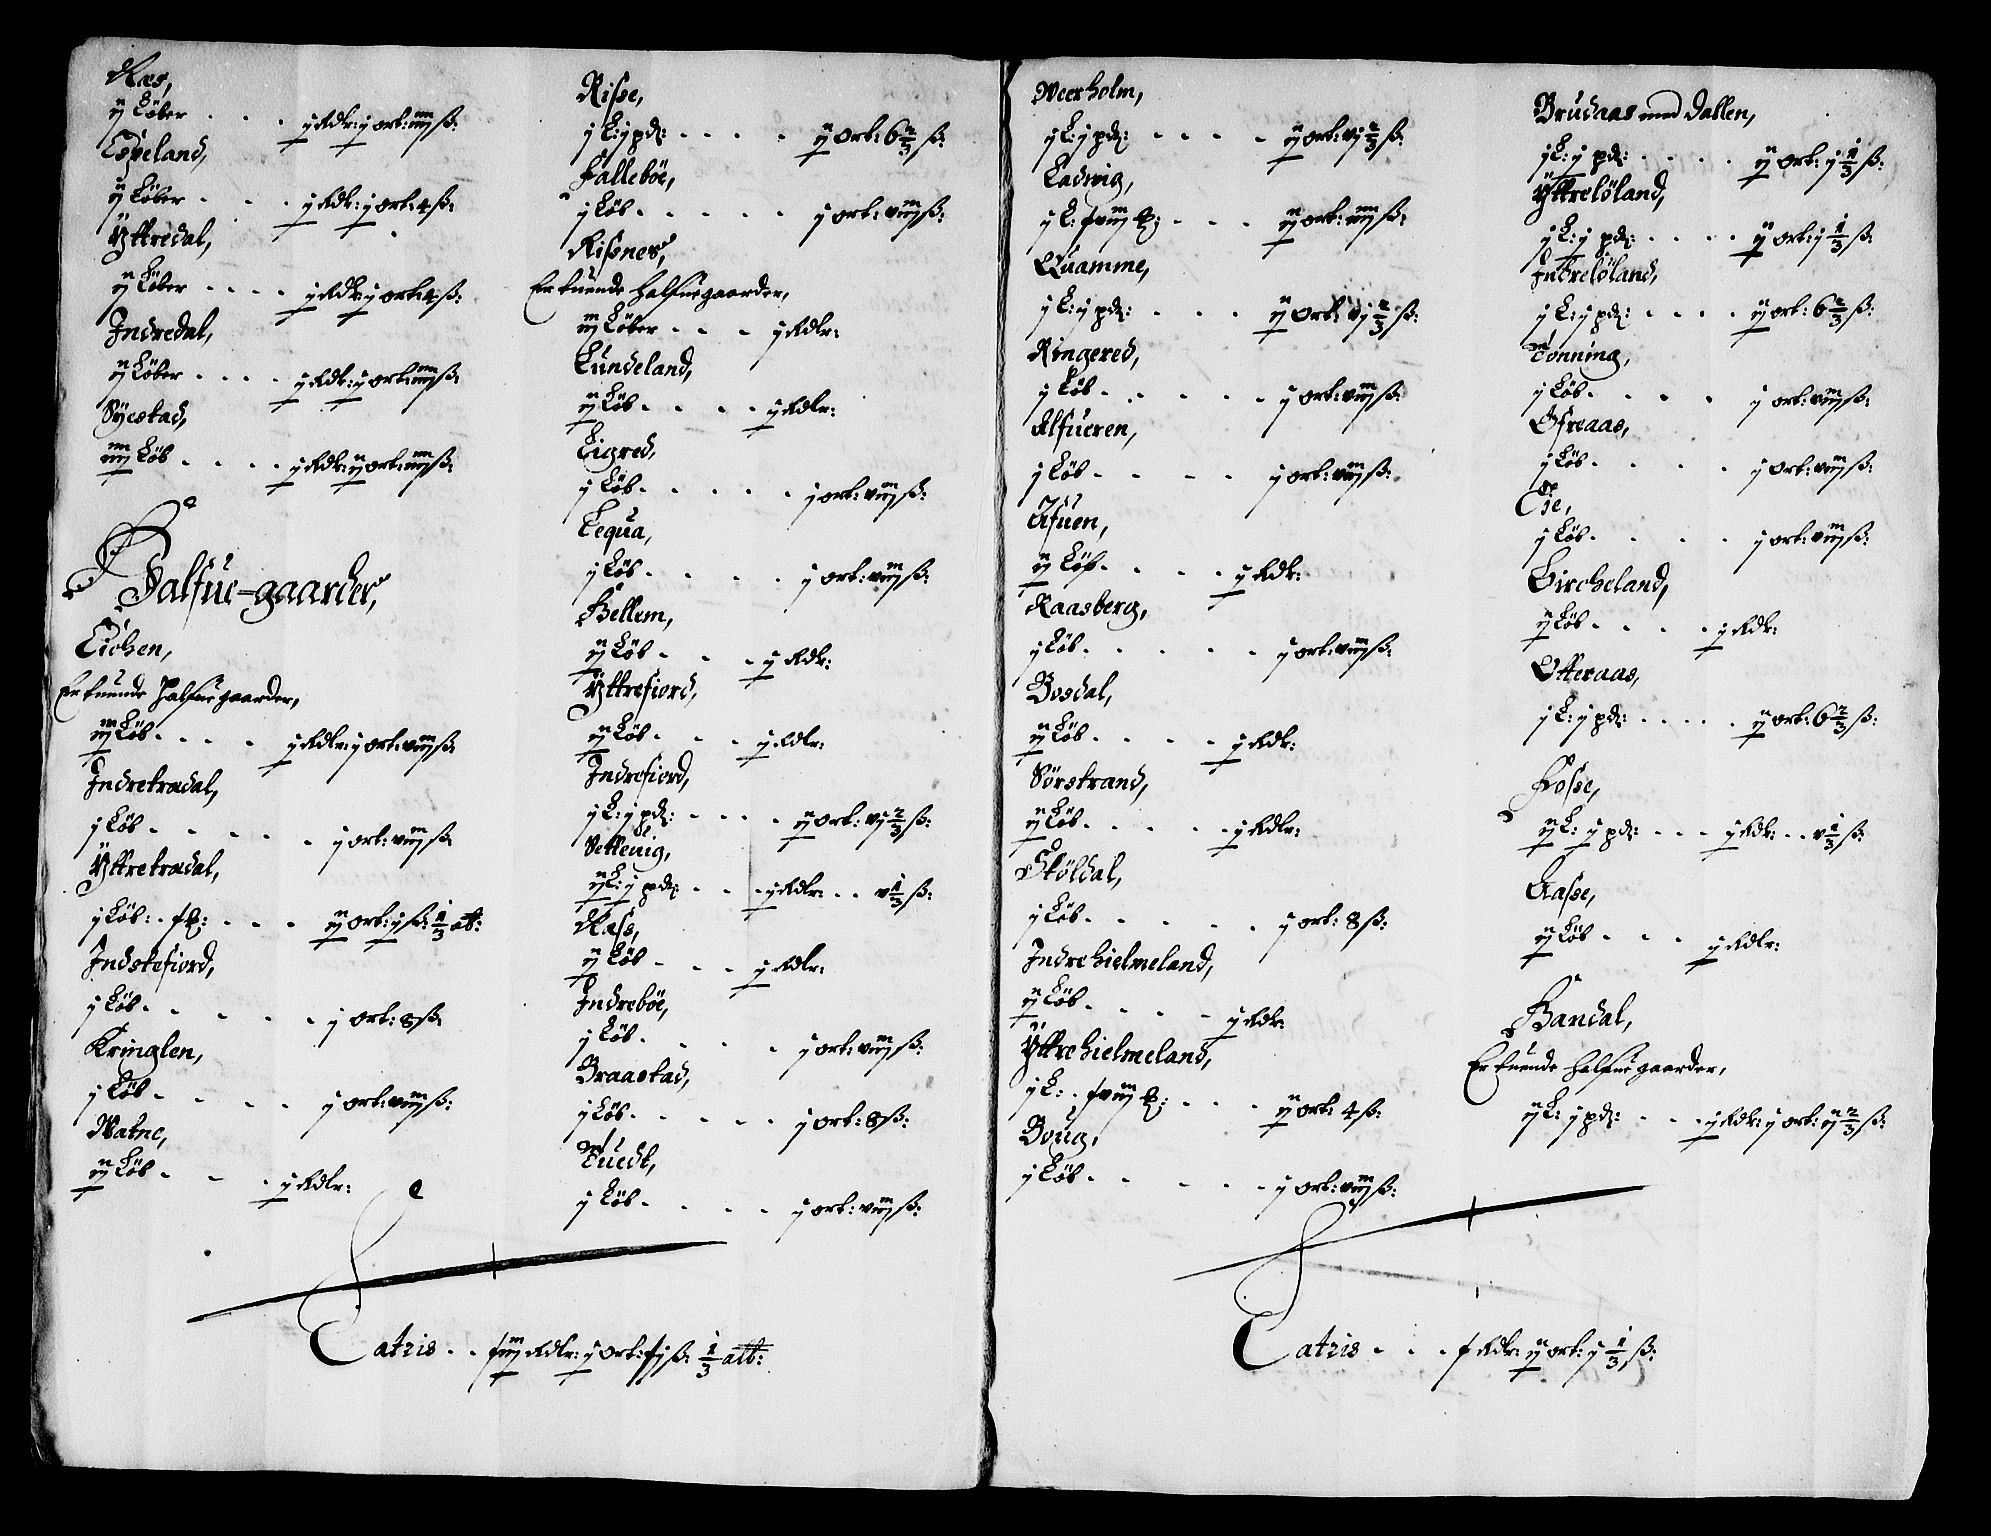 Næs,
ij Løber . . . j Rdr: j ort: iiij ß:
Espeland,
ij Løber . . . j Rdr: j ort: 4 ß:
Yttredal,
ij Løber . . . . j Rdr: j ort: 4 ß:
Indredal,
ij Løber . . . . j Rdr: j ort: iiij ß:
Syestad,
iiij Løb . . . . ij Rdr: ij ort: iiij ß:
Halfue-gaarder,
Eichen,
Er tuende halfue gaarder,
iij Løb . . . . j Rdlr: j ort: viij ß:
Indretrædal,
j Løb . . . . . j ort: viij ß
Yttretrædal,
j Løb: . . . . ij ort: j ß: 1/3 alb:
Indstefiord,
j Løb . . . . . j ort: 8 ß:
Kringlen,
j Løb . . . . j ort: viij ß:
Watne,
ij Løb . . . j Rdlr:
Risse,
j L: j pd: . . . . ij ort: 6 2/3 ß:
Fallebøe,
j Løb . . . . . j ort: viij ß:
Risnes,
Er tuende halfue gaarder,
iij Løber . . . j Rdlr:
Lundeland,
ij Løb . . . . j Rdlr:
Eigred,
j Løb . . . . . j ort: viij ß:
Tequa,
j Løb . . . . j ort: viij ß:
Hellem,
ij Løb . . . j Rdr:
Yttrefiord,
ij Løb . . . j Rdlr:
Indrefiord,
j L: j pd: . . . . ij ort: vj 2/3 ß:
Setteuig,
ij L: j pd: . . . j Rdlr: . . v 1/3 ß:
Næss,
ij Løb . . . j Rdlr:
Indrebøe,
j Løb . . . . j ort: viij ß:
Braastad,
j Løb . . . . . j ort: 8 ß:
Tuedt,
j Løb . . . . j ort: viij ß:
Latris . . Rdlr: j ort: ß: 1/3 alb:
Weerholm,
j L: j pd: . . . . ij ort: vj 2/3 ß:
Ladwig,
j L: . . . ij ort: iiij ß:
Quamme,
j L: j pd: . . . ij ort: vj 2/3 ß:
Ringered,
j Løb . . . . . j ort: viij ß:
Alfueren,
j Løb . . . . j ort: viij ß:
Afuen,
ij Løb . . . . j Rdr:
Raasberg,
j Løb . . . . . j ort: viij ß:
Bosdal,
ij Løb . . . . j Rdr:
Sørstrand,
ij Løb . . . . . j Rdlr:
Støldal,
j Løb . . . . . j ort: 8 ß:
Indrehielmeland,
ij Løb . . . . j Rdr:
Yttrehielmeland,
j L: . . . . ij ort: 4 ß:
Boug,
j Løb . . . . . j ort: viij ß:
Brudaas med Dallen,
j L: j pd: . . . . ij ort: j 1/3 ß:
Yttreløland,
j L: j pd: . . . . ij ort: j 1/3 ß:
Indreløland,
j L: j pd: . . . . ij ort: 6 2/3 ß:
Tonning,
j Løb . . . . j ort: viij ß:
Ofreaas,
j Løb . . . . j ort: viij ß:
Øie,
j Løb . . . . j ort: viij ß:
Bircheland,
ij Løb . . . . j Rdr:
Otteraas,
j L: j pd: . . . . . ij ort: 6 2/3 ß:
Fosse,
ij L: j pd: . . . j Rdr: . . v 1/3 ß:
Aasse,
ij Løb . . . j Rdlr:
Handal,
Er tuende halfue gaarder,
ij L: j pd: . . . j Rdr: j ort: ij 2/3 ß:
Latris . . . Rdr: ij ort: j 1/3 ß: